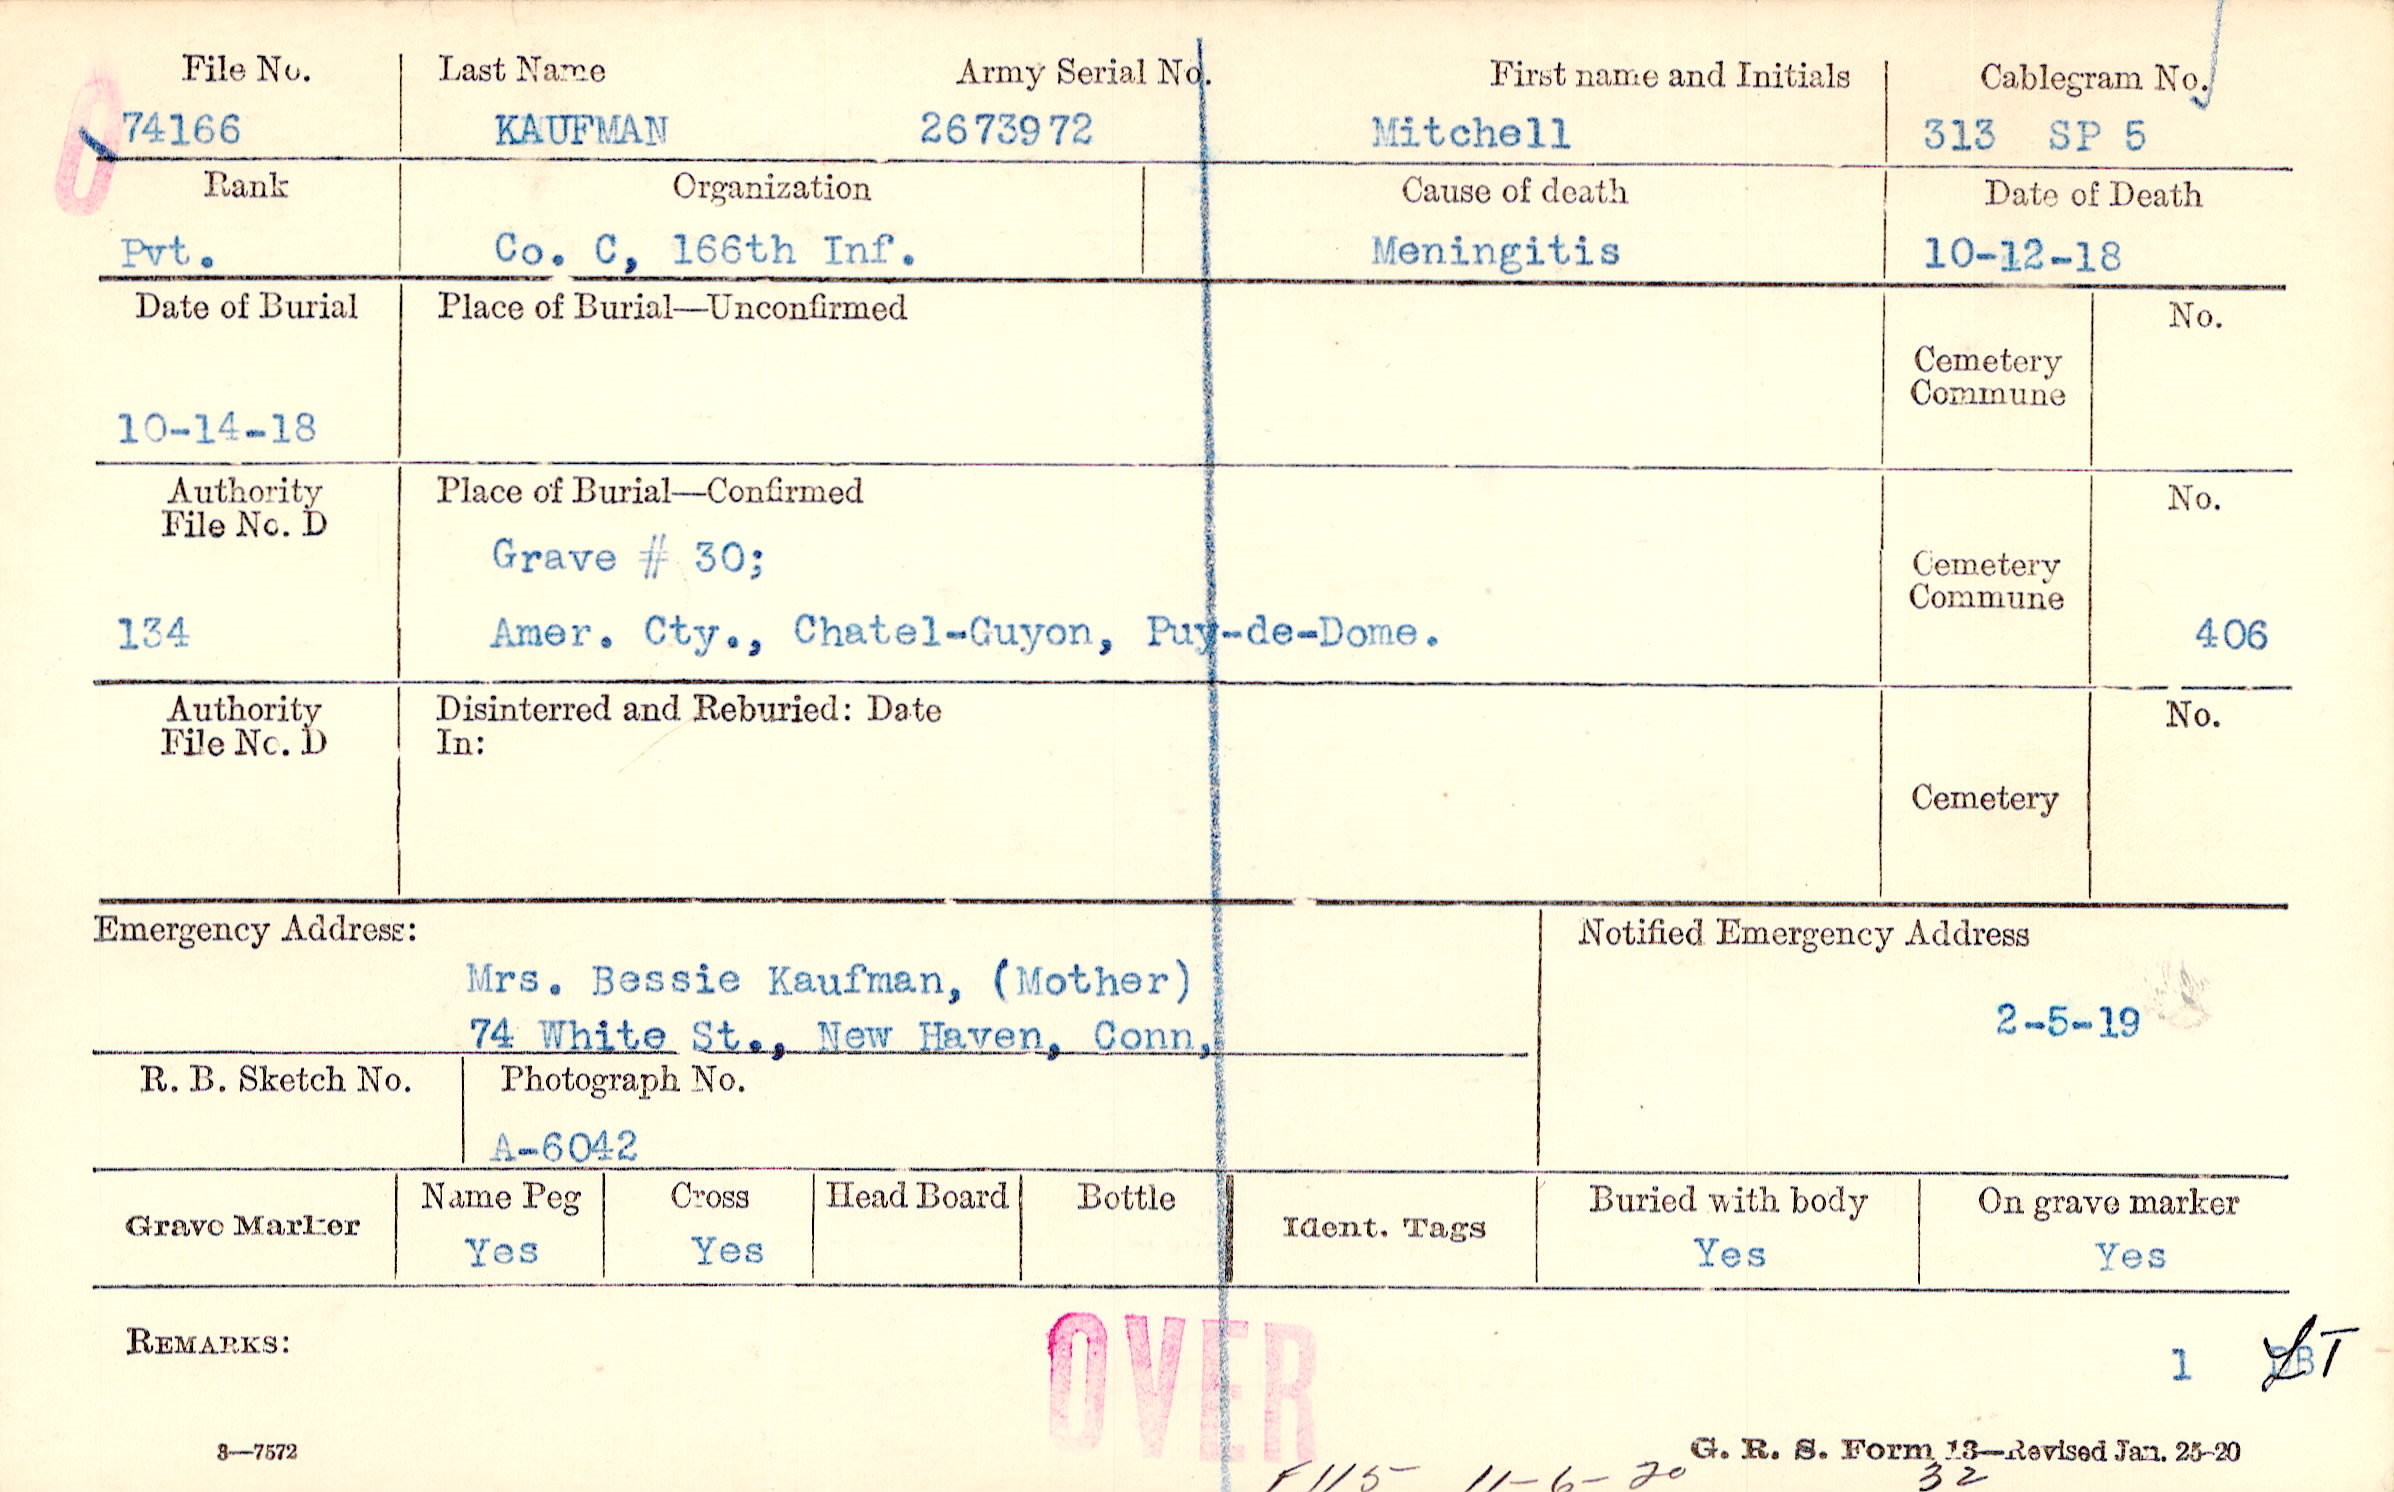 File No. Last Name Army Serial No. First name and Initials Cablegram No.
74166 KAUFMAN 2673972 Mitchell 313 SP 5
Rank Organization Cause of death Date of Death
Pvt. Co. C, 166th Inf. Meningitis 10-12-18
Date of Burial Place of Burial—Unconfirmed No.
Cemetery
Commune
10-14-18
Authority Place of Burial—Confirmed No.
File No. D
Grave # 30;
Cemetery
Commune
134 Amer. Cty., Chatel-Guyon, Puy-de-Dome. 406
Authority Disinterred and Reburied: Date No.
File No. D In:
Cemetery
Emergency Address: Notified Emergency Address
Mrs. Bessie Kaufman, (Mother)
74 White St., New Haven, Conn, 2-5-19
R. B. Sketch No. Photograph No.
A-6042
Grave Marker Name Peg Cross Head Board Bottle Ident. Tags Buried with body On grave marker
Yes Yes Yes Yes
REMARKS: OVER 1
3—7572 G. R. S. Form 13—Revised Jan. 25-20
F115 11-6-20 32